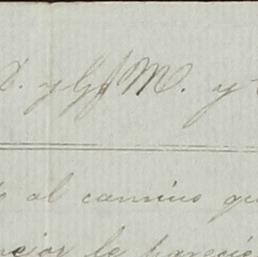 D. y G/M. y
al camino qu
mejor le pareció